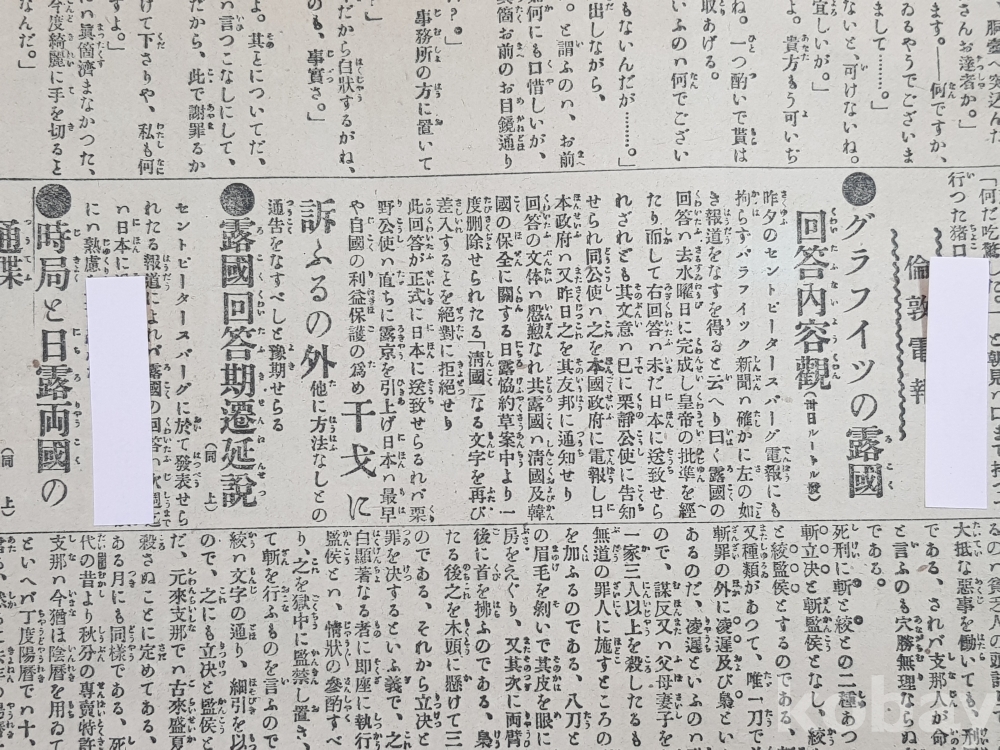 胴壺へ突込んた
さんお達者か。」
ます。――何ですか、
ゐるやうでございま
まして……。」
ないと、可けないね。
宜しいが。」
よ。貴方もう可いぢ
ね。一つ酌いで貰は
取あげる。
いふのハ何でござい
もないんだが………。」
出しながら、
。と謂ふのハ、お前
如何にも口惜しいが、
眞箇お前のお目鏡通り
か?。」
事務所の方に置いて
だから白狀するがね、
のも、事實さ。」
よ。其とについてだ、
の言つこなしにして、
だから、此で謝罪るか
けて下さりや、私も何
すよ。」
に眞箇濟まなかつた、
今度綺麗に手を切ると
なんだ。」
行つた猪口
倫敦電報
●グラフイツの露國
回答內容觀(卅日ルートル發)
昨夕のセントピータースバーグ電報にも
拘らずパラフイツク新聞ハ確かに左の如
き報道をなすを得ると云へり曰く露國の
回答ハ去水曜日に完成し皇帝の批準を經
たり而して右回答ハ未だ日本に送致せら
れざれども其文意ハ已に栗誶公使に告知
せられ同公使ハ之を本國政府に電報し日
本政府ハ又昨日之を其友邦に通知せり
回答の文体ハ慇懃なれ共露國ハ淸國及韓
國の保全に關する日露協約草案中より一
度删除せられたる「淸國」なる文字を再び
差入するとを絕對に拒絕せり
此回答が正式に日本に送致せらるれバ栗
野公使ハ直ちに露京を引上げ日本ハ最早
や自國の利益保護の爲め干戈に
訴ふるの外他に方法なしとの
通告をなすべしと豫期せらる
●露國回答期遷延說
(同上)
セントピータースバーグに於て發表せら
れたる報道によれバ露國の回答ハ次週迄
ハ日本に
に熟慮
●時局と日露両國の
通牒
(同上)
大抵な惡事を働いても、刑
である、されバ支那人が命
と言ふのも穴勝無理ならぬ
である。
死刑に斬と絞との二種あつ
斬立决と斬監俟となし、絞
と絞監俟とするのである、
又種類があつて、唯一刀で
斬罪の外に凌遲及び梟とい
あるのだ、凌遲といふのハ
ので、謀反又ハ父母妻子を
一家三人以上を殺したるも
無道の罪人に施すところの
を加ふるのである、八刀と
の眉毛を剝いで其皮を眼に
房をえぐり、又其次に両臂
後に首を拂ふのである、梟
たる後之を木頭に懸けて三
のである、それから立决と
罪を决するといふ義で、之
白顯著なる者に卽座に執行
監俟とハ、情狀の參酌すべ
り、之を獄中に監禁し置き、
て斬を行ふものを言ふので
絞ハ文字の通り、細引を以
ので、之にも立决と監俟と
だ、元來支那でハ古來盛夏
殺さぬことに定めてある、
ある月にも同樣である、死
代の昔より秋分の專賣特許
支那ハ今猶ほ陰曆を用ゐて
といへバ丁度陽曆での十、
kobay